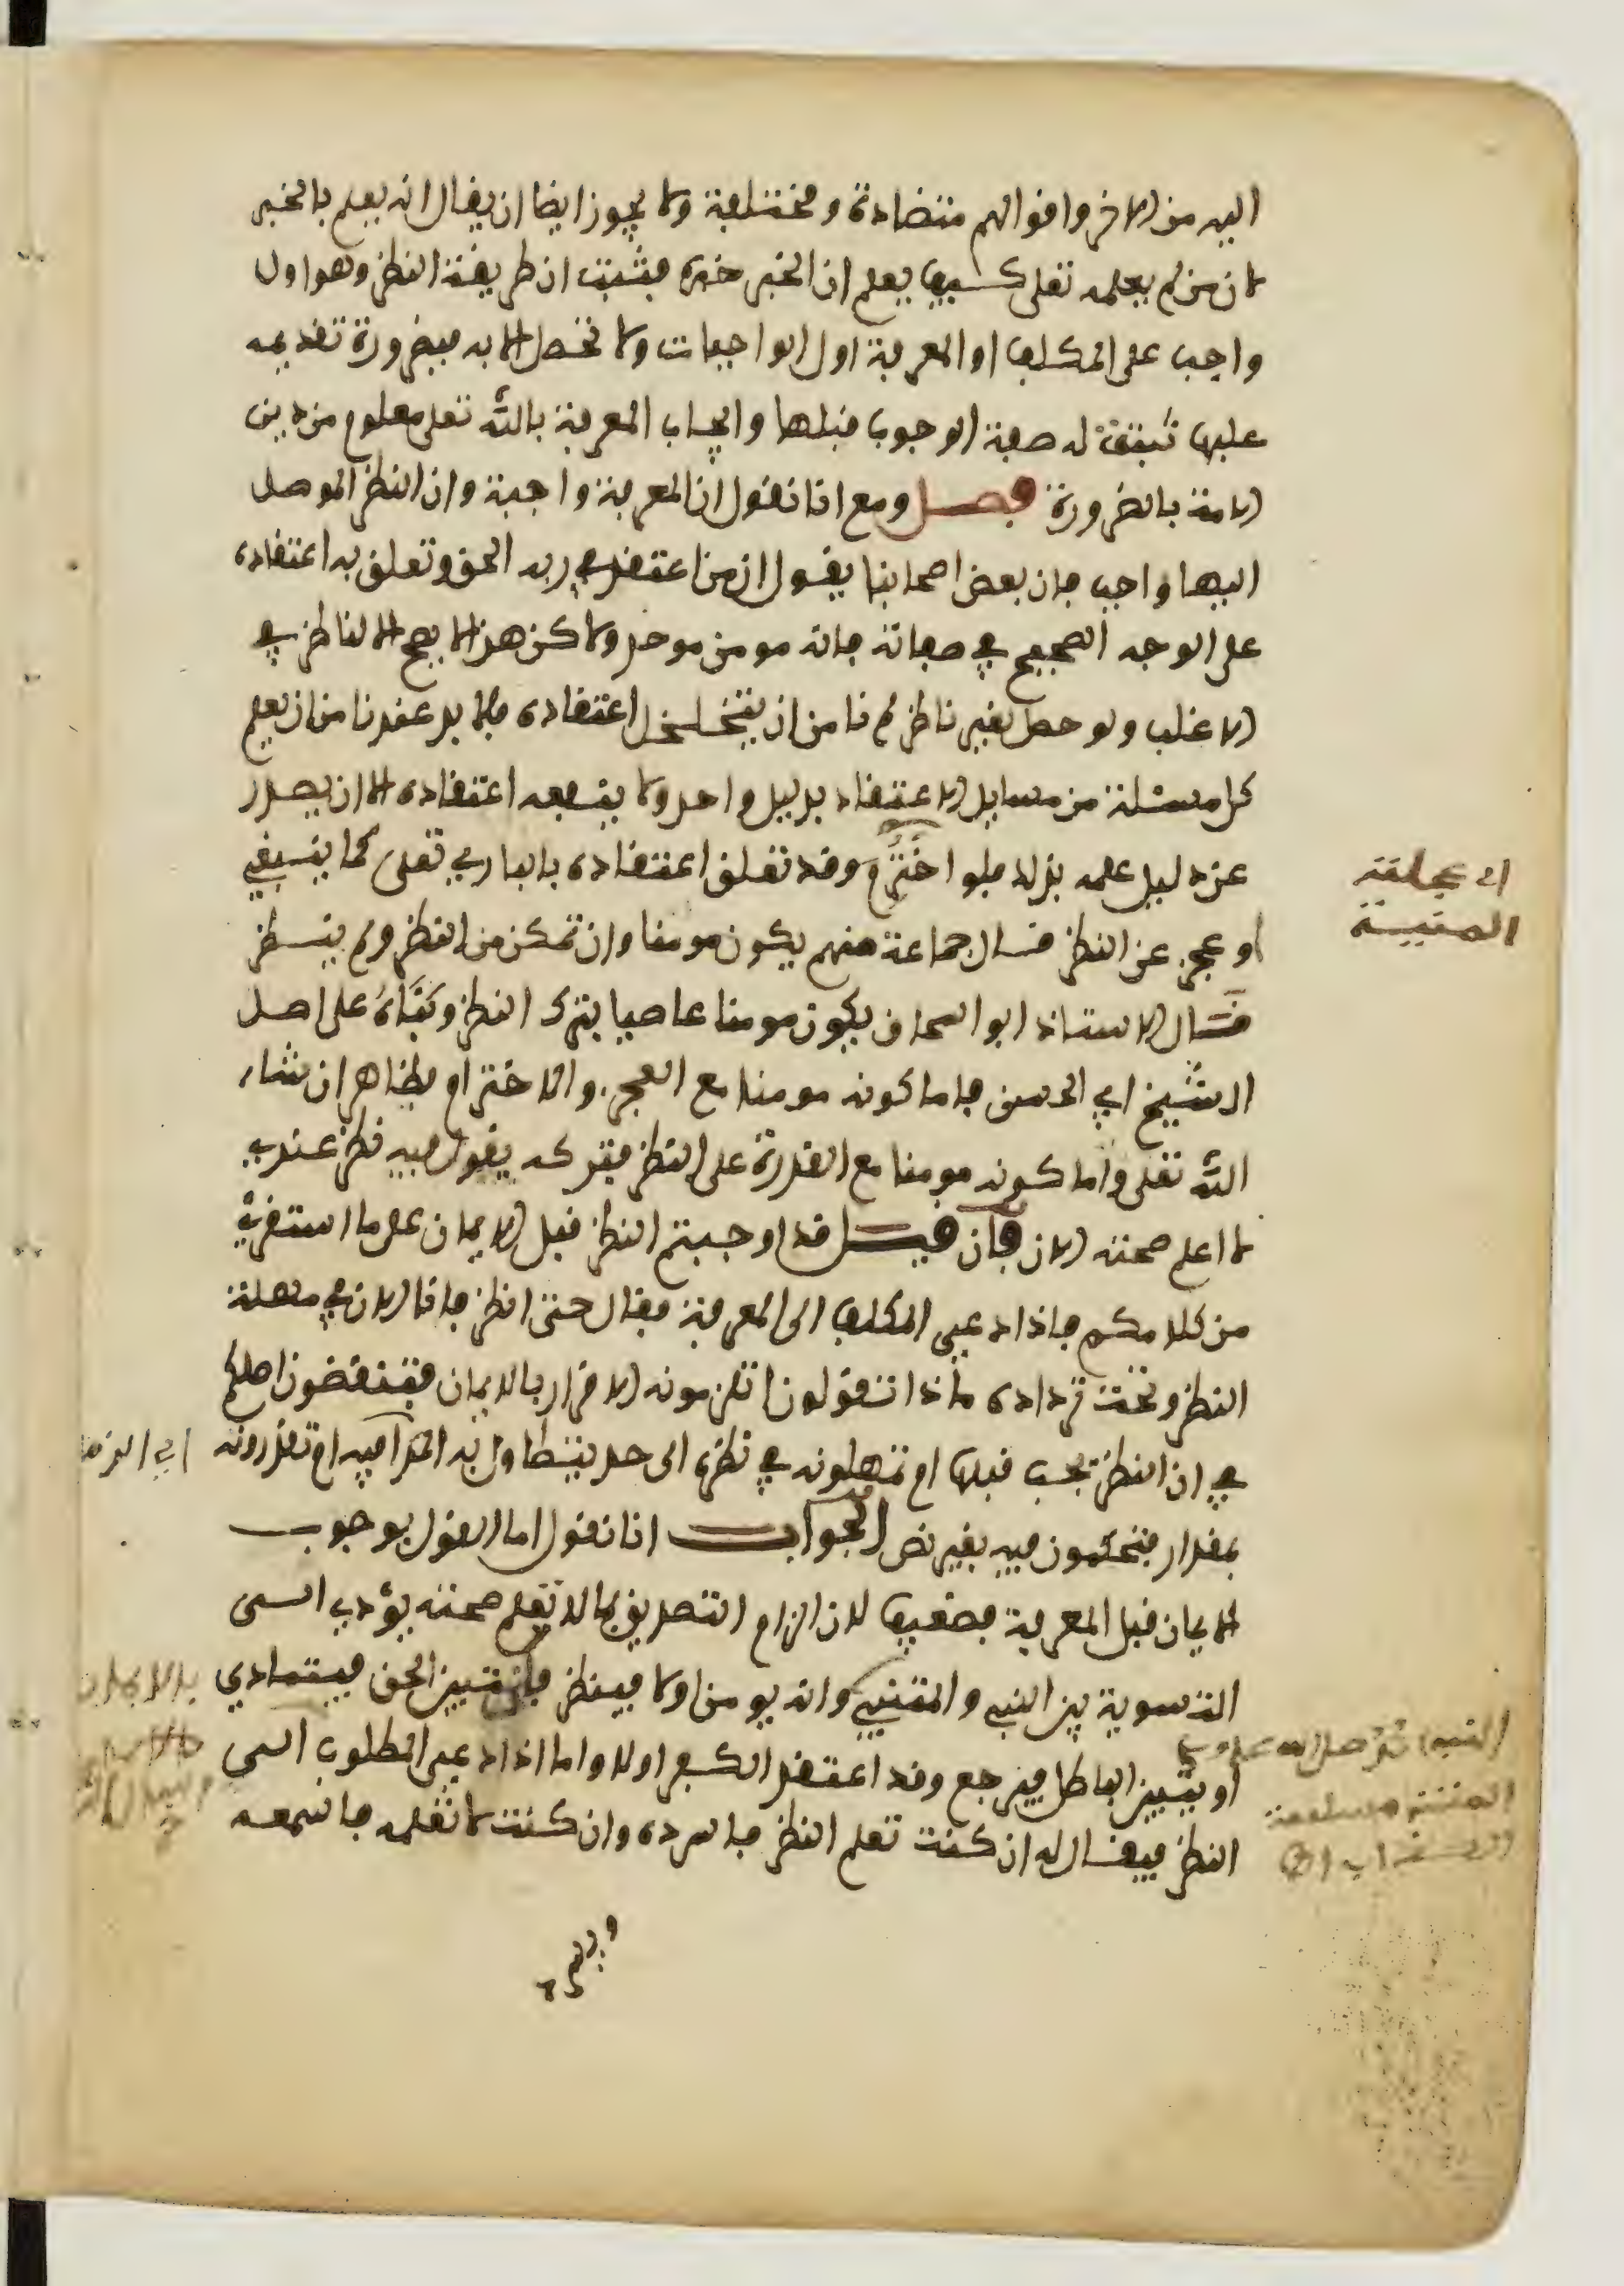 اليه من الاخر واقوالهم متضادة ومختلفة ولا يجوز ايضا ان يقال انه يعلم بالخبر
لان من لم يعلمه تعلى كيف يعلم ان الخبر خبره فثبت ان طريقة النظر وهو اول
واجب على المكلف او المعرفة اول الواجبات ولا تحصل الا به فبضرورة تقديمه
عليها تثبت له صفة الوجوب قبلها وايجاب المعرفة بالله تعلى معلوم من دين
الامة بالضرورة فصل ومع انا نقول ان المعرفة واجبة وان النظر الموصل
اليها واجب فان بعض اصحابنا يقول ان من اعتقد في ربه الحق وتعلق به اعتقاده
على الوجه الصحيح في صفاته فانه مومن موحد ولاكن هذا لا يصح الا لناظر في
الاغلب ولو حصل لغير ناظر لم نامن ان يتخلخل اعتقاده فلا بد عندنا من ان يعلم
كل مسئلة من مسايل الاعتقاد بدليل واحد ولا ينفعه اعتقاده الا ان يصدر
عن دليل علمه بذلك فلو اخْتُرِمَ وقد تعلق اعتقاده بالباري تعلى كما ينبغي
او عجز عن النظر فقال جماعة منهم يكون مومنا وان تمكن من النظر ولم ينظر
قال الاستاذ ابو اسحاق يكون مومنا عاصيا بترك النظر وبناه على اصل
الشيخ ابي الحسن فاما كونه مومنا مع العجز والاخترام فظاهر ان شاء
الله تعلى واما كونه مومنا مع القدرة على النظر فتركه يقول فيه نظر عندي
لا اعلم صحته الان فان قيل قد اوجبتم النظر قبل الايمان على ما استقرئ
من كلامكم فاذا دعي المكلف الى المعرفة فقال حتى انظر فانا الان في مهلة
النظر وتحت ترداده ماذا تقولون اتلزمونه الاقرار بالايمان فتنقضون اصلكم
في ان النظر يجب قبلها ام تمهلونه في نظره الى حد يتطاول به المدا فيه ام تقدرونه
بمقدار فتحكمون فيه بغير نص الجواب انا نقول اما القول بوجوب
الايمان قبل المعرفة فضعيف لان الزام التصديق بما لا تعلم صحته يؤدي الى
التسوية بين النبي والمتنبي وانه يومن اولا فينظر فان تبين الحق فيتمادي
او يتبين الباطل فيرجع وقد اعتقد الكفر اولا واما اذا دعى المطلوب الى
النظر فيقال له ان كنت تعلم النظر فاسرده وان كنت لا تعلمه فاسمعه
اي عجلته
المنية
اي الزمن
النبي صلى الله عليه وسلم
المتنبي مسيلمة
الكذاب